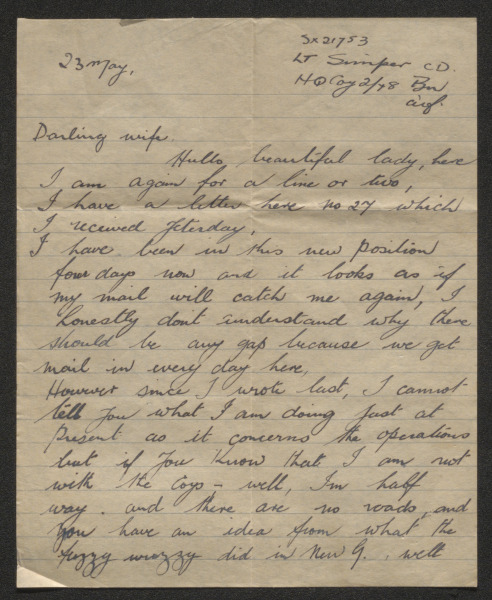 SX21753
23 May,
Lt Simper CD.
HQ Coy 2/48 Bn
aif.
Darling wife.
Hullo, beautiful lady, here
I am again for a line or two,
I have a letter here no 27 which
I received yeterday,
I have been in this new position
four days now and it looks as if
my mail will catch me again, I
honestly don't understand why there
should be any gap because we get
mail in every day here,
However since I wrote last, I cannot
tell you what I am doing just at
present as it concerns the operations
but if you know that I am not
with the Coys - well, I'm half
way. and there are no roads, and
you have an idea from what the
fuzzy wuzzy did in New G. well